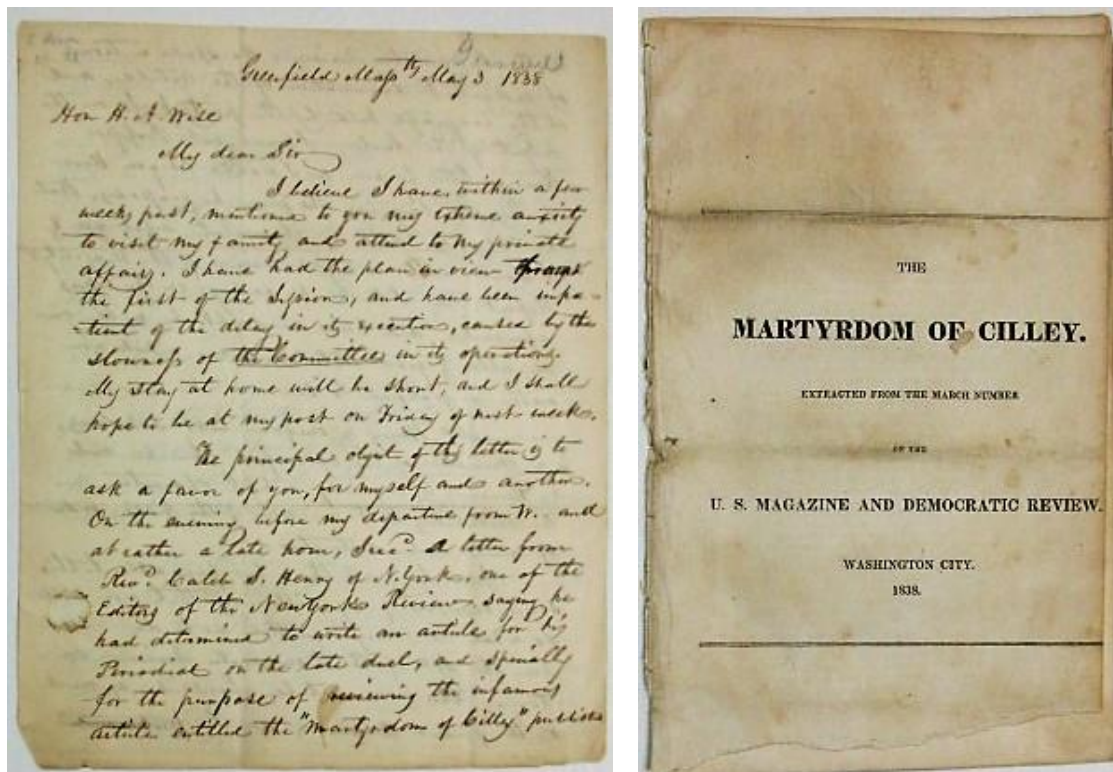 Greenfield Mass th May 3 1838
Hon H. A. Wise
My dear Sir
I believe I have, within a few
weeks past, mentioned to you my extreme anxiety
to visit my family and attend to my private
affairs. I have had the plan in view
the first of the Session, and have been impa-
-tient of the delay in its execution, caused by the
slowness of the Committee in its operations.
My stay at home will be short, and I shall
hope to be at my post on Friday of next week.
The principal object of this letter is to
ask a favor of you, for myself and another.
On the evening before my departure from W. and
at rather a late hour, I recd. a letter from
Revd. Caleb S. Henry of N. York, one of the
Editors of the New York Review, saying he
had determined to write an article for his
Periodical on the late duel, and specially
for the purpose of reviewing the infamous
article entitled the "Martyrdom of Cilley" publish
THE
MARTYRDOM OF CILLEY.
EXTRACTED FROM THE MARCH NUMBER
OF THE
U. S. MAGAZINE AND DEMOCRATIC REVIEW.
WASHINGTON CITY.
1838.